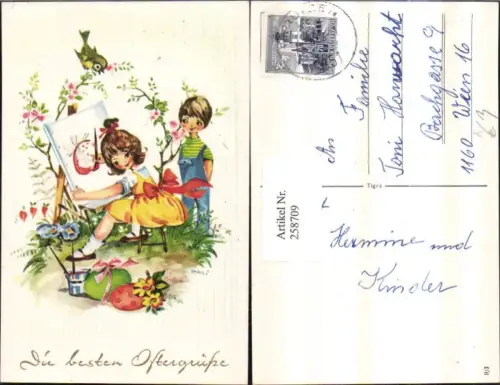 Die besten Ostergrüße
An Familie
Toni Hanwacht
Bachgasse 9
1160 Wien 16
Tigra
Artikel Nr.
258709
Hermine und
Kinder